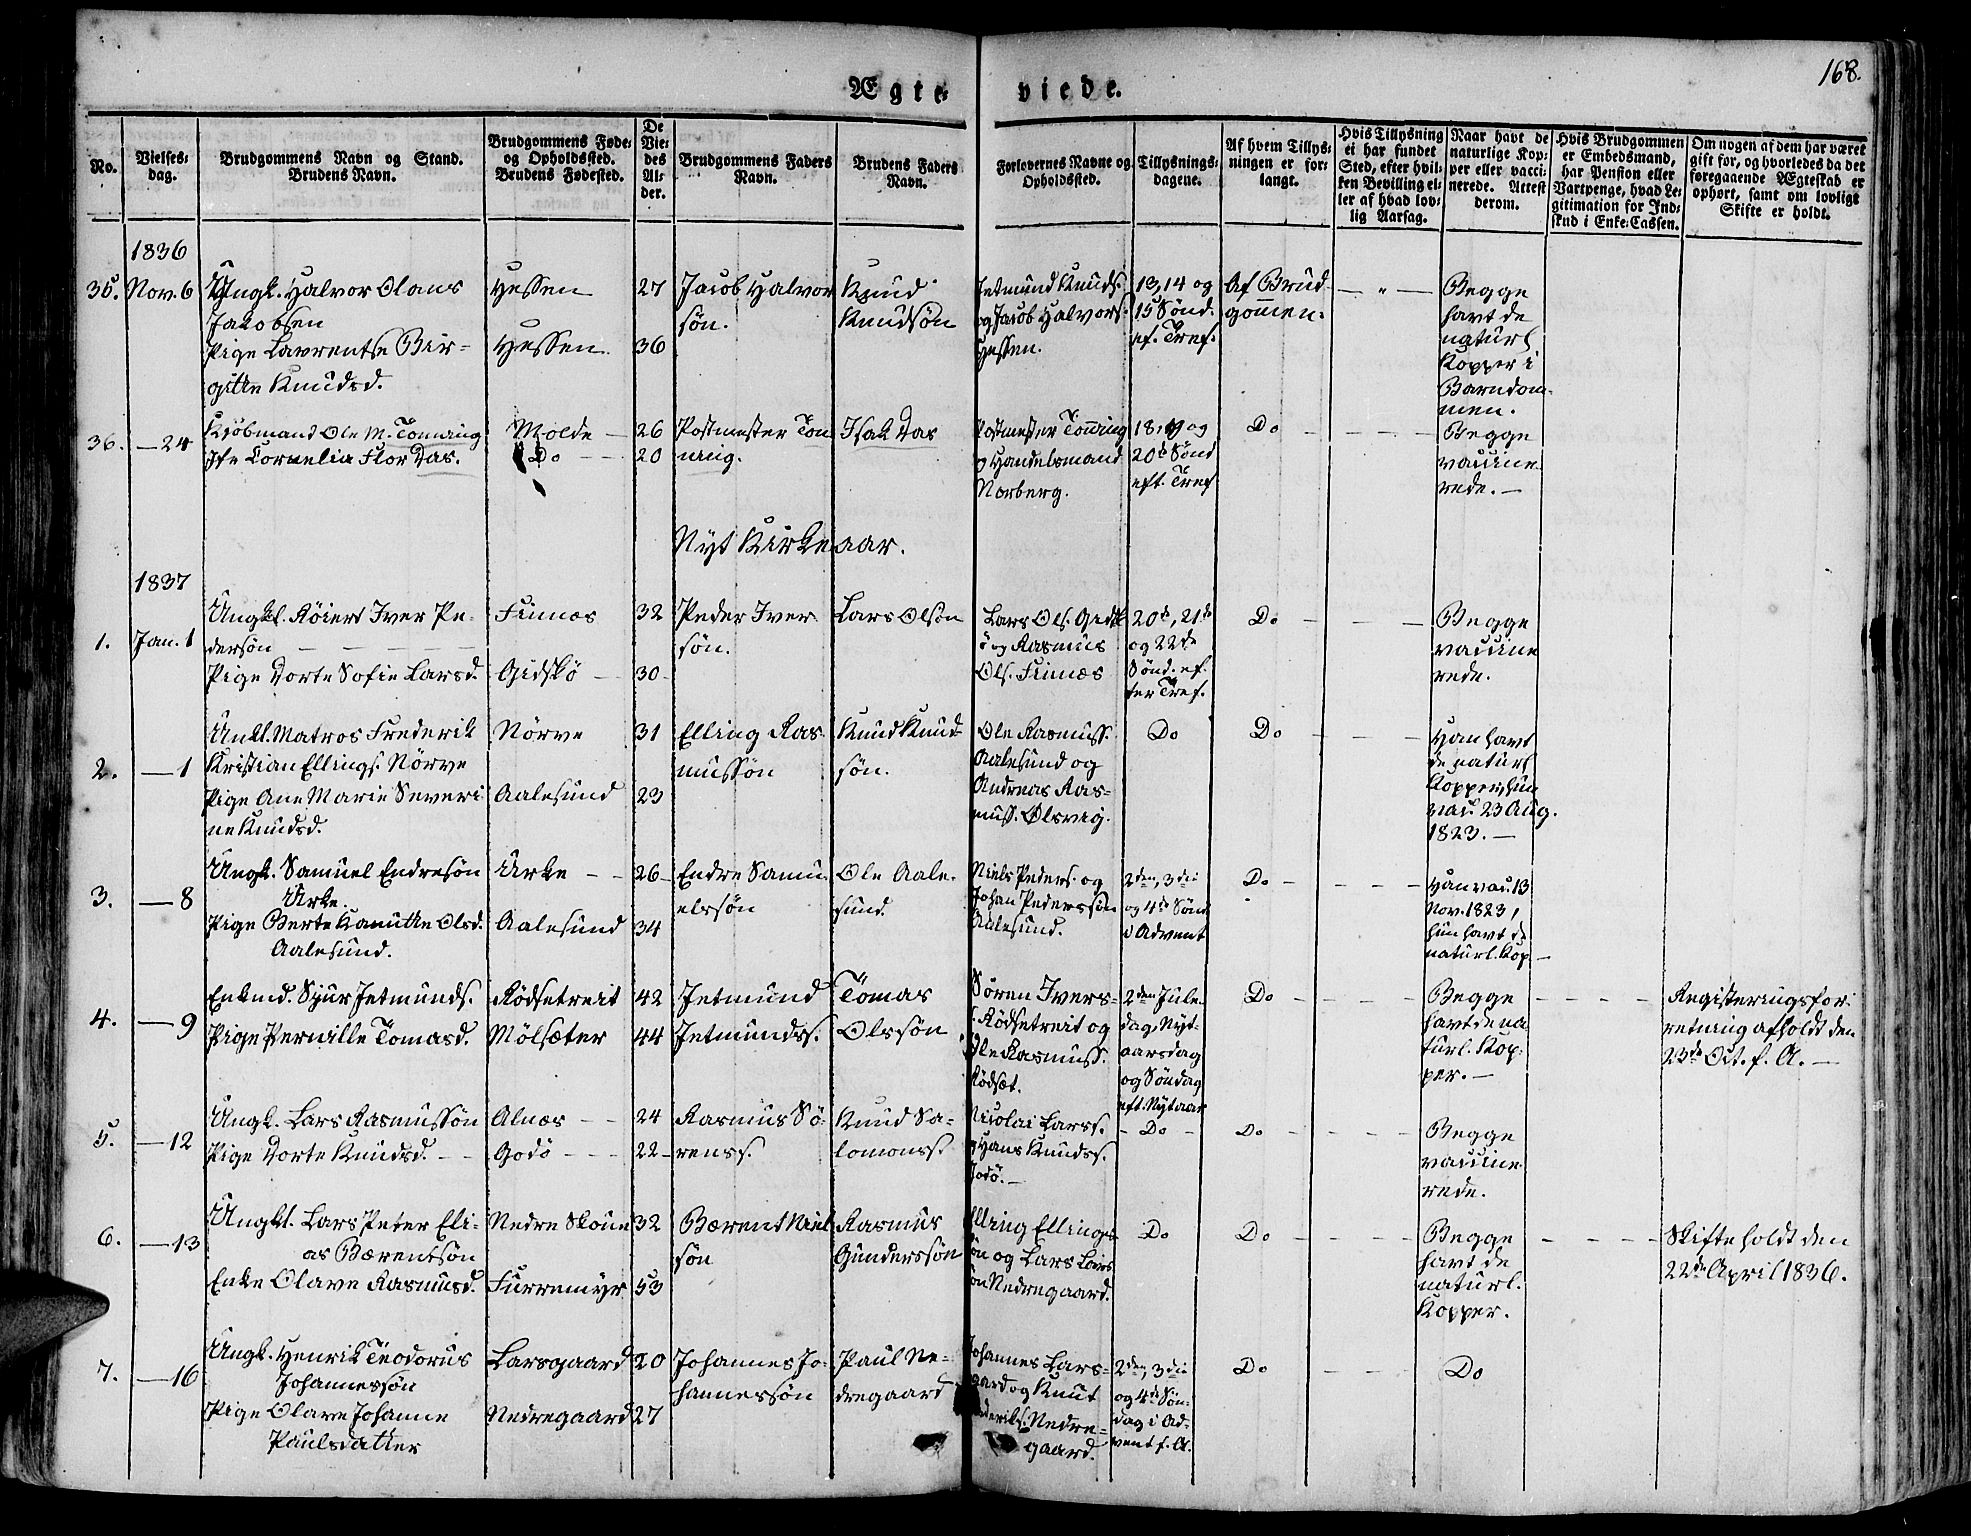 168.
Ægte-
viede.
No.
Vielses-
dag.
Brudgommens Navn og Stand.
Brudens Navn.
Brudgommens Føde-
og Opholdssted.
Brudens Fødested.
De
Vie-
des
Al-
der.
Brudgommens Faders
Navn.
Brudens Faders
Navn.
Forlovernes Navne og
Opholdssted.
Tillysnings-
dagene.
Af hvem Tillys-
ningen er for-
langt.
Hvis Tillysning
ei har fundet
Sted, efter hvil-
ken Bevilling el-
ler af hvad lov-
lig Aarsag.
Naar havt de
naturlige Kop-
per eller vacci-
nerede. Attest
derom.
Hvis Brudgommen
er Embedsmand,
har Pension eller
Vartpenge, hvad Le-
gitimation for Ind-
skud i Enke-Cassen.
Om nogen af dem har været
gift før, og hvorledes da det
foregaaende Ægteskab er
ophørt, samt om lovligt
Skifte er holdt.
1836
35. Nov. 6
Ungk. Halvor Olaus
Jakobsen
Pige Lavrentse Bir-
gitte Knudsd.
Hessen
Hessen
27
36
Jacob Halvor
søn.
Knud
Knudsøn
Jetmund Knuds.
og Jacob Halvors.
Hessen.
13, 14 og
15 Sønd.
ef. Tref.
Af Brud-
gommen.
Begge
havt de
naturl
Kopper i
Barndom-
men.
36. — 24
Kjøbmand Ole M. Tonning
Cornelia Flor Das.
Molde
Do
26
20
Postmester Ton
ning.
Isak Das
Postmester Tonning
og Handelsmand
Norberg.
18, 19 og
20de Sønd
eft. Tref
Do
Begge
vaccine
rede. —
Nyt Kirkeaar.
1837
1. Jan. 1
Ungkl. Røiert Iver Pe-
dersøn
Pige Dorte Sofie Larsd.
Finnæs
Gidskø
32
30
Peder Iver
søn.
Lars Olsøn
Lars Ols. Gidsk
ø og Rasmus
Ols. Finnæs
20de, 21de
og 22de
Sønd. ef-
ter Tref.
Do
Begge
vaccine
rede.
2. — 1
Unkl. Matros Frederik
Kristian Ellings. Nørve
Pige Ane Marie Severi
ne Knudsd.
Nørve
Aalesund
31
23
Elling Ras
mussøn
Knud Knud-
søn.
Ole Rasmuss.
Aalesund og
Andreas Ras-
muss. Ølsvig.
Do
Do
Han havt
de naturl
Kopper, hun
vac. 23 Aug.
1823. —
3. — 8
Ungk. Samuel Endresøn
Urke.
Pige Berte Kanutte Olsd.
Aalesund.
Urke
Aalesund
26
34
Endre Samu-
elssøn
Ole Aale-
sund.
Niels Peders. og
Johan Pederssøn
Aalesund.
2den, 3die
og 4de Sønd
i Advent
Do
Han vac. 13
Nov. 1823,
hun havt de
naturl. Kop —
4. — 9
Enkmd. Sjur Jetmunds.
Pige Pernille Tomasd.
Rødsetreit
Mølsæter
42
44
Jetmund
Jetmundss.
Tomas
Olssøn
Søren Ivers-
s. Rødsetreit og
Ole Rasmuss.
Rødsæt.
2den Jule-
dag, Nyt-
aarsdag
og Søndag
eft. Nytaar
Do
Begge
havt de na
turl. Kop-
per. —
Registeringsfor-
retning afholdt den
23de Oct. f. A. —
5. — 12
Ungk. Lars Rasmussøn
Pige Dorte Knudsd.
Alnæs
Godø
24
22
Rasmus Sø-
renss.
Knud Sa-
lomonss.
Nicolai Larss.
og Hans Knudss.
Godø. —
Do
Do
Begge
vaccine
rede.
6. — 13
Ungkl. Lars Peter Eli-
as Bærentsøn
Enke Olave Rasmusd.
Nedre Skoue
Furremyr
32
53
Bærent Niel
søn
Rasmus
Gunderssøn
Elling Ellings-
søn og Lars Lars
søn Nedregaard.
Do
Do
Begge
havt de
naturl.
Kopper.
Skifte holdt den
22de April 1836.
7. — 16
Ungk. Henrik Teodorus
Johannessøn
Pige Olave Johanne
Paulsdatter
Larsgaard
Nedregaard
20
27
Johannes Jo-
hannessøn
Paul Ne-
dregaard
Johannes Lars-
gaard og Knut
Frederiks. Nedre-
gaard.
2den, 3die
og 4de Søn-
dag i Ad-
vent f. A.
Do
Do